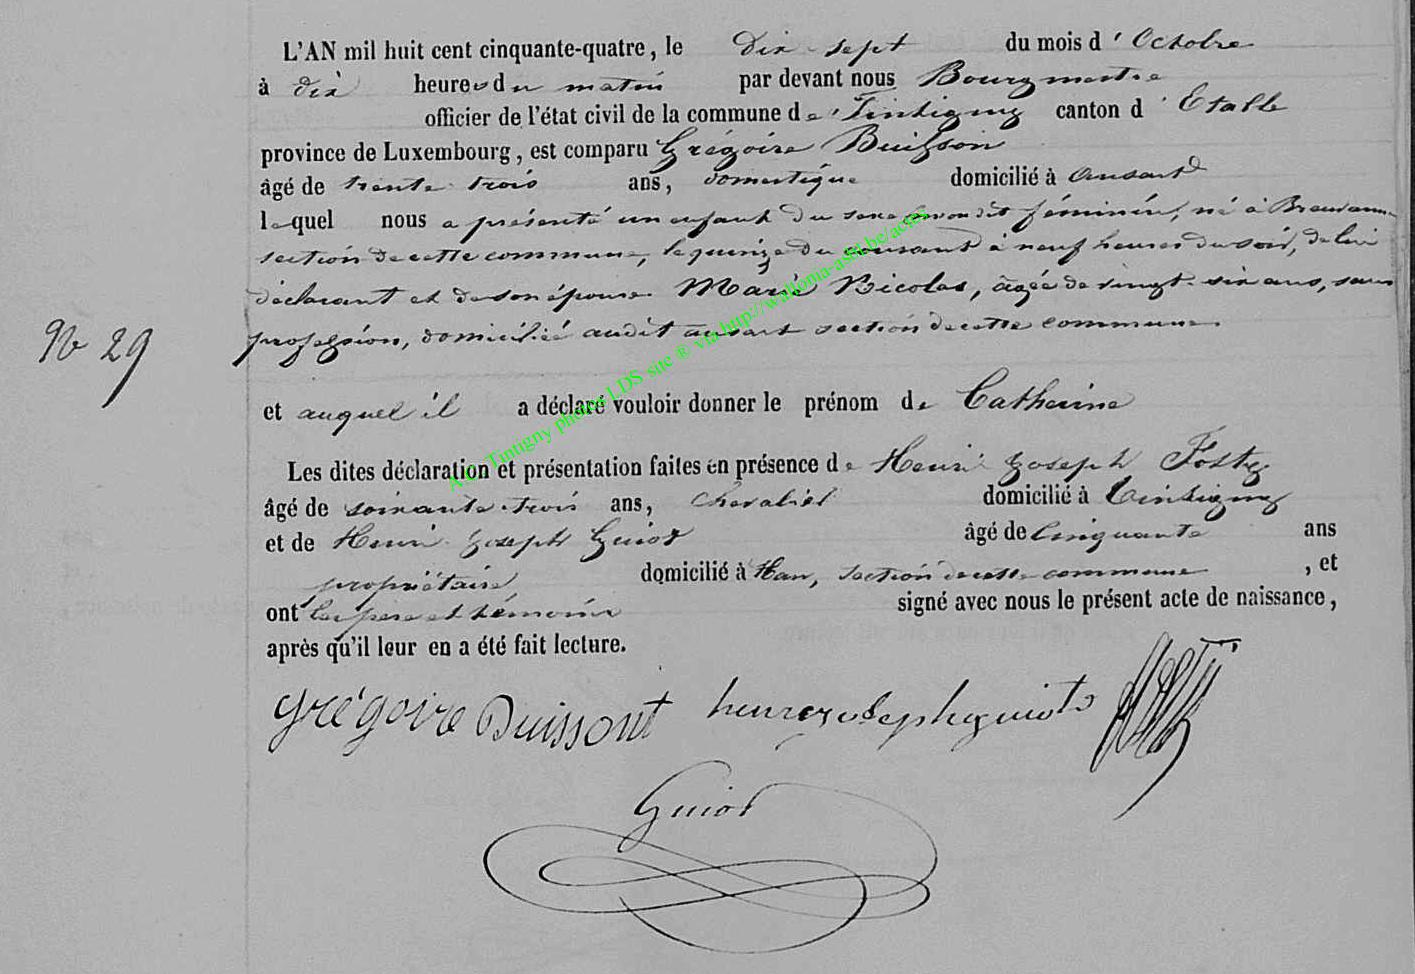 L'AN mil huit cent cinquante-quatre, le dix sept du mois d'Octobre
à dix heures du matin par devant nous Bourgmestre
officier de l'état civil de la commune de Tintigny canton d'Etalle
province de Luxembourg, est comparu Grégoire Buisson
âgé de trente trois ans, domestique domicilié à ansart
lequel nous a présenté un enfant du sexe féminin, né à
section de cette commune, le quinze du courant à neuf heures du soir, de lui
déclarant et de son épouse Marie Nicolas, âgée de vingt six ans, sans
profession, domiciliée audit ansart section de cette commune
No 29
et auquel il a déclaré vouloir donner le prénom de Catherine
Les dites déclaration et présentation faites en présence de Henri Joseph Fosty
âgé de soixante trois ans, domicilié à Tintigny
et de Henri Joseph Guiot âgé de cinquante ans
propriétaire domicilié à Han, section de cette commune, et
ont les père et témoins signé avec nous le présent acte de naissance,
après qu'il leur en a été fait lecture.
grégoire Buissont henry joseph guiot Fosty
Guiot
A.C. Tintigny photos LDS site ® via http://wallonia-asbl.be/actes